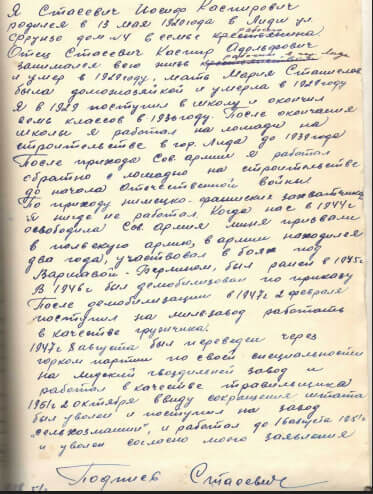 Я Стасевич Иосиф Каспирович
родился в 13 мая 1920 года в Лиди ул.
Фрунзе дом № 4 в семье рабочего
Отец Стасевич Каспир Адольфович
занимался всю жизь
и умер в 1929 году, мать Мария Станислав
была доможозяйкой и умерла в 1929 году
Я в 1929 поступил в школу и окончил
семь классов в 1936 году. После окончания
школы я работал на лошади на
строительстве в гор. Лида до 1939 года
После прихода Сов. армии я работал
обратно с лошадю на строительстве
до начала Отечественной войны
По приходу немецко-фашиских захватчика
Я нигде не работал, когда нас в 1944 г
освободила Сов. армия миня призвали
в польскую армию, в армии находился
два года, участвовал в боях под
Варшавой-Берлином, был ранен в 1945 г.
В 1946 г был демобилизован по приказу
После демобилизации в 1947 г 2 февраля
поступил на мильзавод работать
в качестве грузчика.
1947 г 8 августа был переведен через
горком партии по своей специальности
на лидский гвоздильный завод и
работал в качестве травильщика
1951 г 2 октября ввиду сокращения штата
был уволен и поступил на завод
"сельхозмашин", и работал до 1 августа 1951 г
и уволен согласно моего заявления
Подпись Стасевич